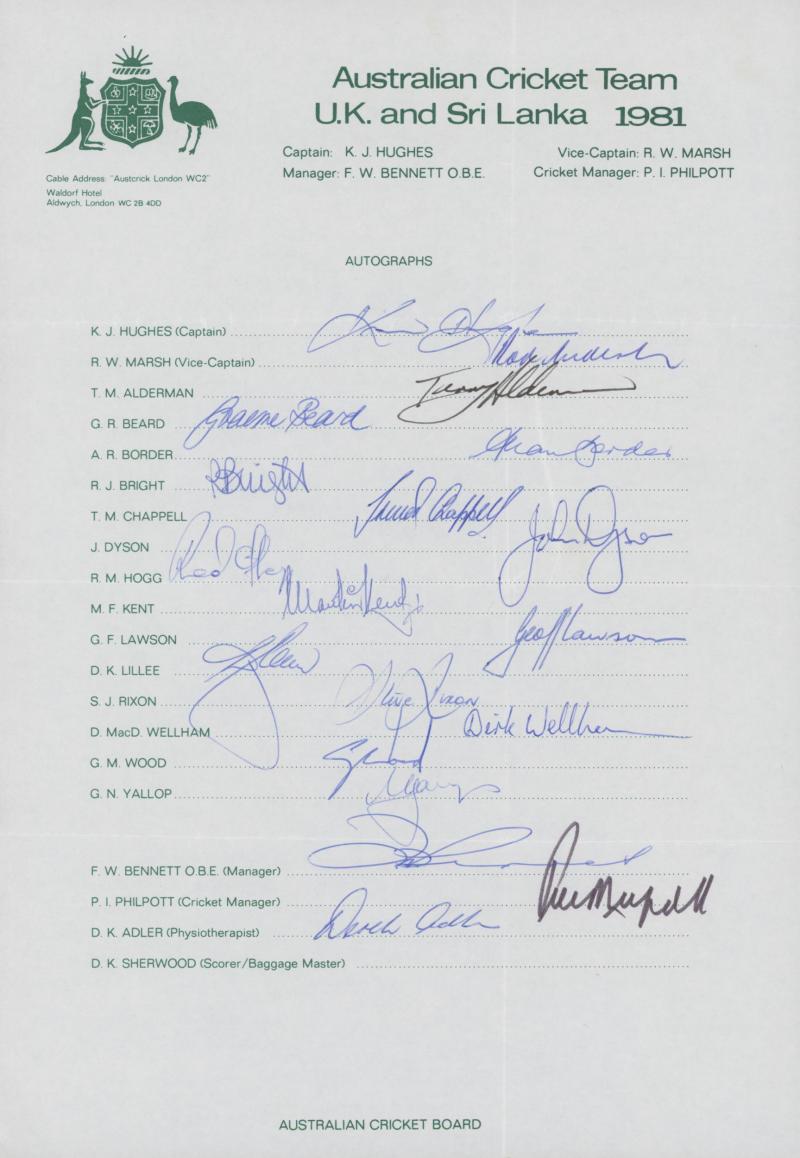 Australian Cricket Team
U.K. and Sri Lanka 1981
Captain: K. J. HUGHES Vice-Captain: R. W. MARSH
Manager: F. W. BENNETT O.B.E. Cricket Manager: P. I. PHILPOTT
Cable Address: "Austcrick London WC2"
Waldorf Hotel
Aldwych, London WC 2B 4DD
AUTOGRAPHS
K. J. HUGHES (Captain)
R. W. MARSH (Vice-Captain)
T. M. ALDERMAN Terry Alderman
G. R. BEARD Graeme Beard
A. R. BORDER Allan Border
R. J. BRIGHT R Bright
T. M. CHAPPELL Trevor Chappell
J. DYSON John Dyson
R. M. HOGG
M. F. KENT Martin Kent
G. F. LAWSON Geoff Lawson
D. K. LILLEE
S. J. RIXON Steve Rixon
D. MacD. WELLHAM Dirk Wellham
G. M. WOOD
G. N. YALLOP
F. W. BENNETT O.B.E. (Manager)
P. I. PHILPOTT (Cricket Manager)
D. K. ADLER (Physiotherapist) Derek Adler
D. K. SHERWOOD (Scorer/Baggage Master)
AUSTRALIAN CRICKET BOARD